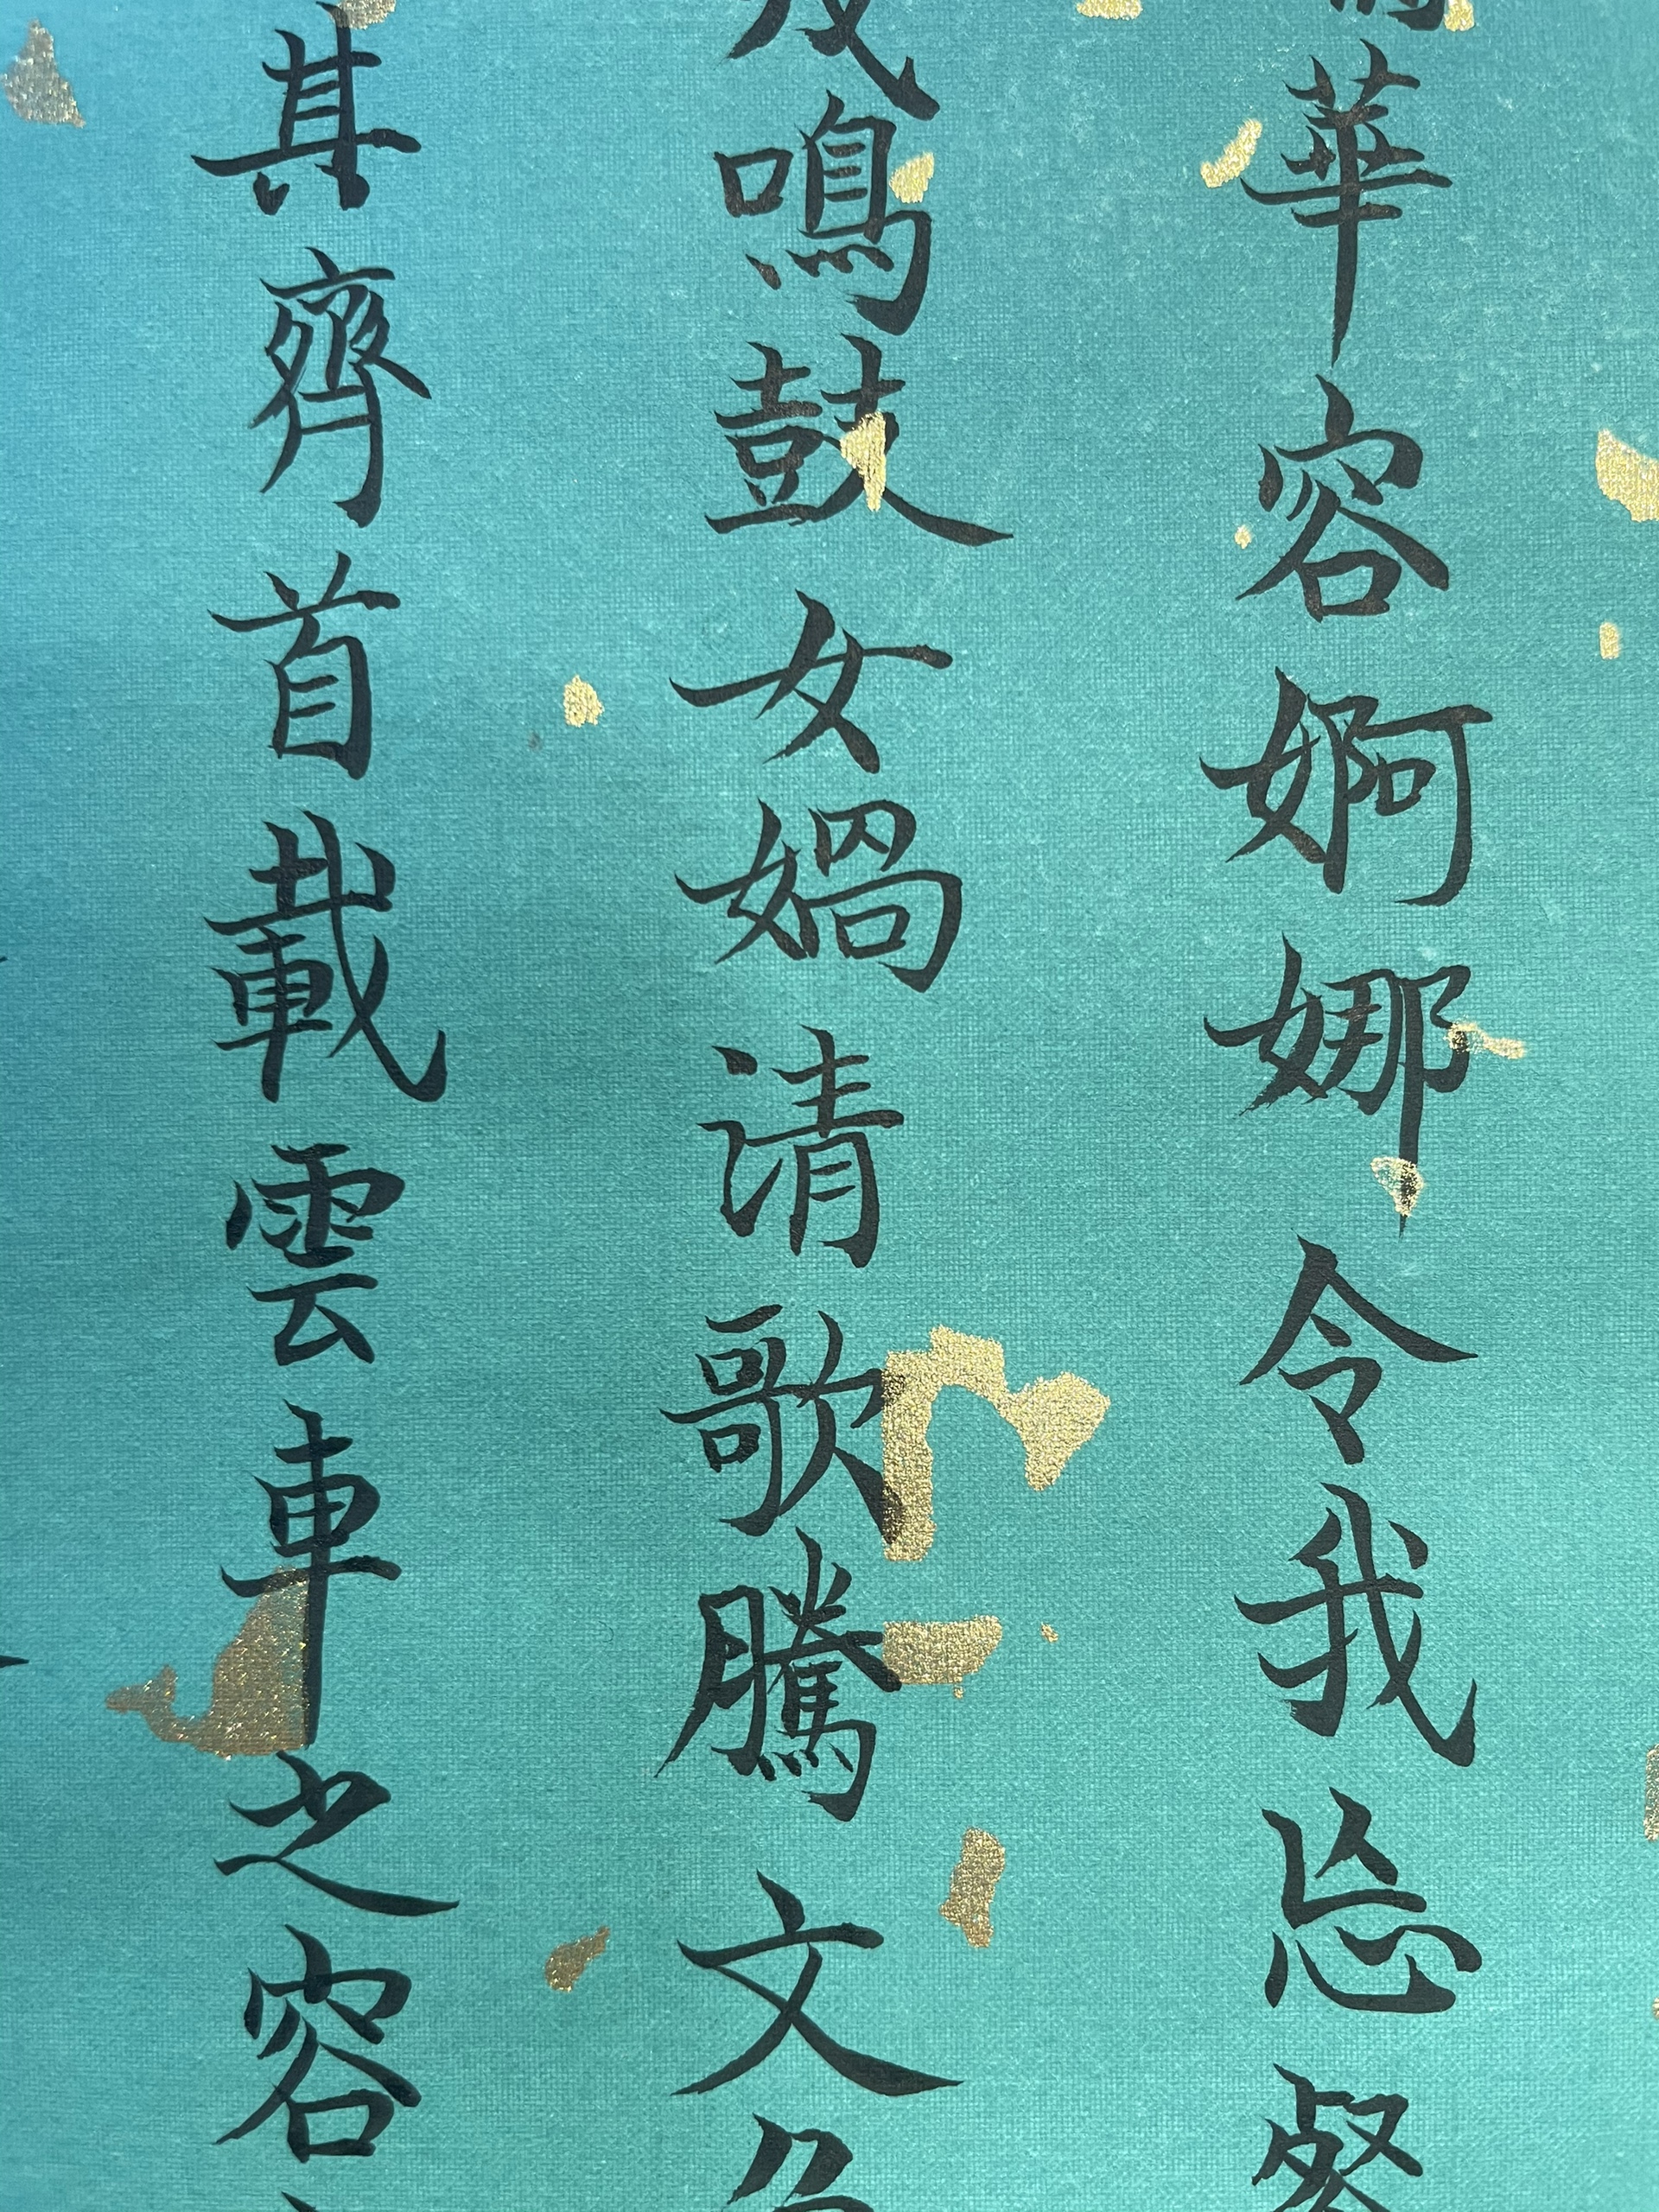 華容婀娜令我忘餐
鳴鼓女媧清歌騰文
其齊首載雲車之容